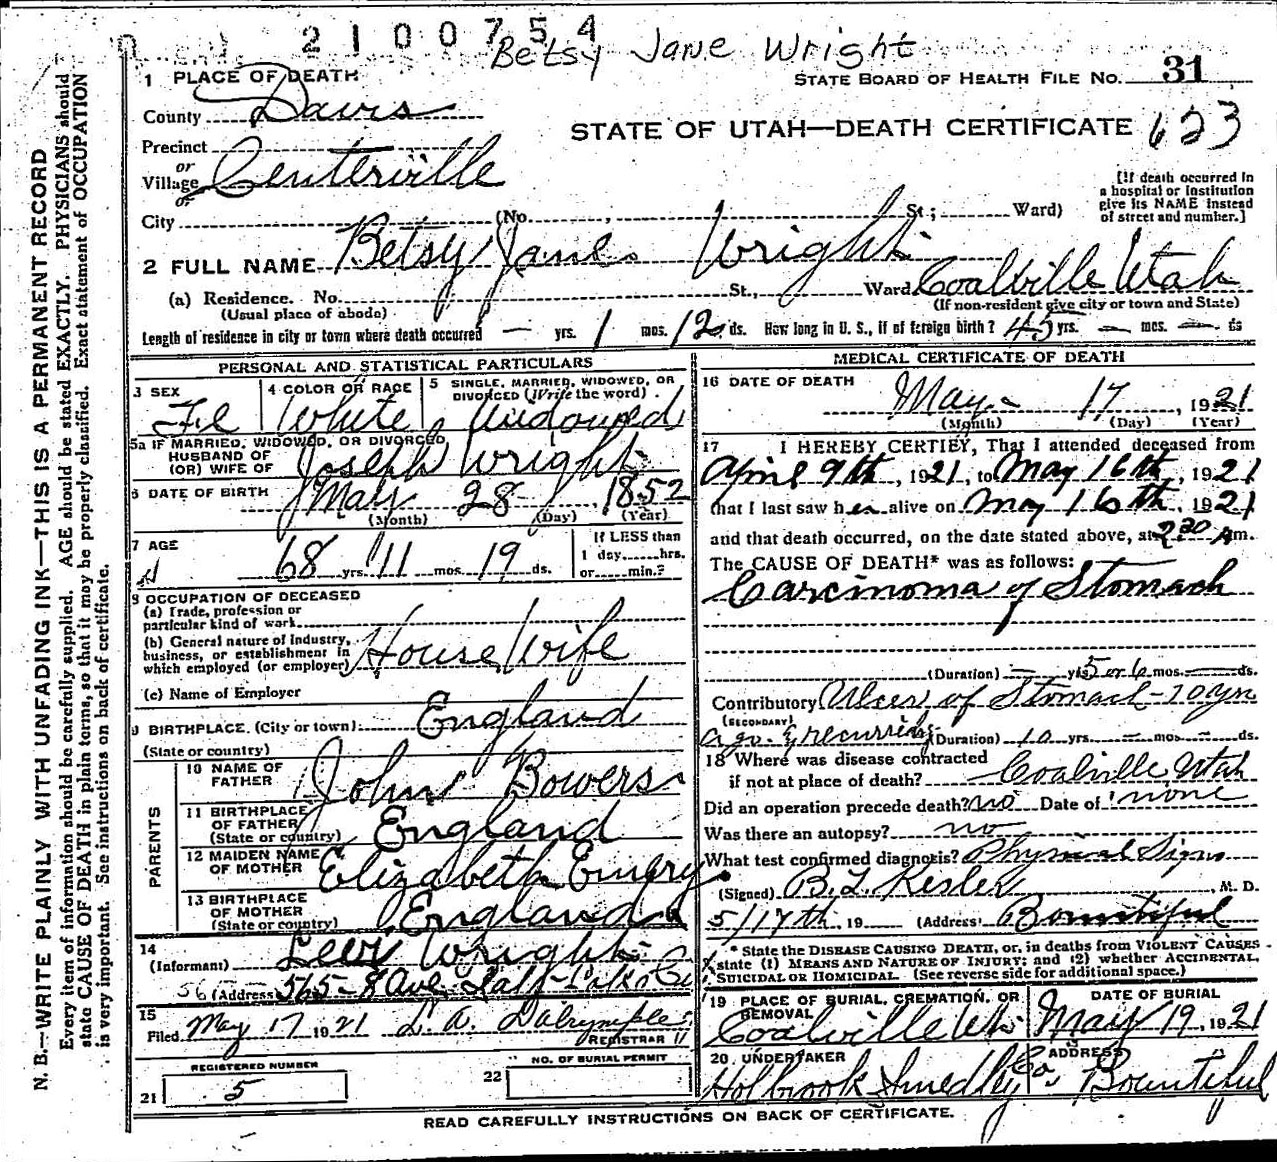 2100754
Betsy Jane Wright
STATE BOARD OF HEALTH FILE NO. 31
1 PLACE OF DEATH
County Davis
STATE OF UTAH—DEATH CERTIFICATE 623
Precinct
or
Village Centerville
or
[If death occurred in
a hospital or institution
give its NAME instead
of street and number.]
City (No. , St.; Ward)
2 FULL NAME Betsy Jane Wright
(a) Residence. No. St., Ward Coalville Utah
(Usual place of abode) (If non-resident give city or town and State)
Length of residence in city or town where death occurred — yrs. 1 mos. 12 ds. How long in U. S., if of foreign birth? 45 yrs. — mos. — ds
PERSONAL AND STATISTICAL PARTICULARS
3 SEX Fe
4 COLOR OR RACE White
5 SINGLE, MARRIED, WIDOWED, OR
DIVORCED (Write the word) Widowed
5a IF MARRIED, WIDOWED, OR DIVORCED,
HUSBAND OF
(OR) WIFE OF Joseph Wright
6 DATE OF BIRTH May 28 1852
(Month) (Day) (Year)
7 AGE 68 yrs. 11 mos. 19 ds.
If LESS than
1 day, hrs.
or min.?
8 OCCUPATION OF DECEASED
(a) Trade, profession or
particular kind of work
(b) General nature of industry,
business, or establishment in
which employed (or employer) House Wife
(c) Name of Employer
9 BIRTHPLACE. (City or town) England
(State or country)
PARENTS
10 NAME OF
FATHER John Bowers
11 BIRTHPLACE
OF FATHER
(State or country) England
12 MAIDEN NAME
OF MOTHER Elizabeth Emery
13 BIRTHPLACE
OF MOTHER
(State or country) England
14
(Informant) Levi Wright
565 (Address 565-8 Ave Salt Lake Ci
15
Filed May 17 1921 L. A. Dalrymple
REGISTRAR
REGISTERED NUMBER
21 5
22 NO. OF BURIAL PERMIT
MEDICAL CERTIFICATE OF DEATH
16 DATE OF DEATH
May 17, 1921
(Month) (Day) (Year)
17 I HEREBY CERTIFY, That I attended deceased from
April 9th, 1921, to May 16th, 1921
that I last saw her alive on May 16th, 1921
and that death occurred, on the date stated above, at 2.30 Am.
The CAUSE OF DEATH* was as follows:
Carcinoma of Stomach
(Duration) — yrs 5 or 6 mos. — ds.
Contributory Ulcer of Stomach - 10 yrs
(SECONDARY)
ago & recurring (Duration) 10 yrs. — mos. — ds.
18 Where was disease contracted
if not at place of death? Coalville Utah
Did an operation precede death? no Date of none
Was there an autopsy? no
What test confirmed diagnosis? Physical Signs
(Signed) B. L. Kesler, M. D.
5/17th, 19 (Address) Bountiful
* State the DISEASE CAUSING DEATH, or, in deaths from VIOLENT CAUSES
state (1) MEANS AND NATURE OF INJURY; and (2) whether ACCIDENTAL,
SUICIDAL OR HOMICIDAL. (See reverse side for additional space.)
19 PLACE OF BURIAL, CREMATION, OR
REMOVAL
Coalville Ut.
DATE OF BURIAL
May 19, 1921
20 UNDERTAKER
Holbrook Smedley Co.
ADDRESS
Bountiful
READ CAREFULLY INSTRUCTIONS ON BACK OF CERTIFICATE.
N. B.—WRITE PLAINLY WITH UNFADING INK—THIS IS A PERMANENT RECORD
Every item of information should be carefully supplied. AGE should be stated EXACTLY. PHYSICIANS should
state CAUSE OF DEATH in plain terms, so that it may be properly classified. Exact statement of OCCUPATION
is very important. See instructions on back of certificate.